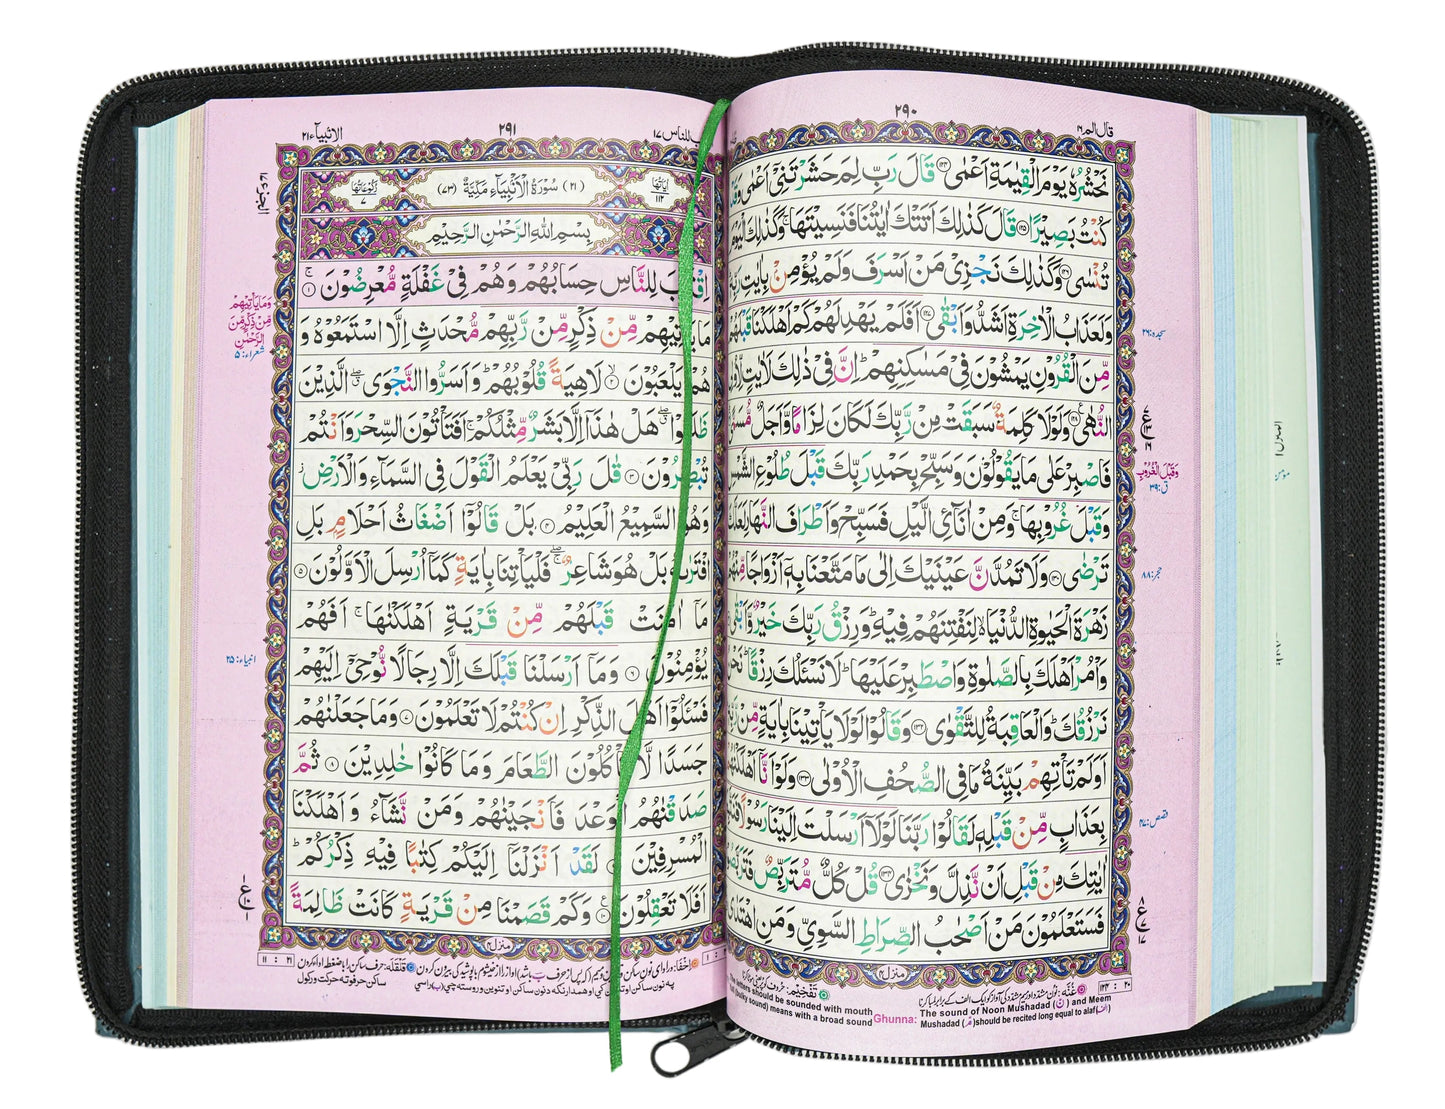 قال الم ١٦
٢٩٠
نَحْشُرُهٗ يَوْمَ الْقِيٰمَةِ اَعْمٰى ﴿۱۲۴﴾ قَالَ رَبِّ لِمَ حَشَرْتَنِيْۤ اَعْمٰى وَقَدْ
كُنْتُ بَصِيْرًا ﴿۱۲۵﴾ قَالَ كَذٰلِكَ اَتَتْكَ اٰيٰتُنَا فَنَسِيْتَهَا ۚ وَكَذٰلِكَ الْيَوْمَ
تُنْسٰى ﴿۱۲۶﴾ وَكَذٰلِكَ نَجْزِيْ مَنْ اَسْرَفَ وَلَمْ يُؤْمِنْۢ بِاٰيٰتِ رَبِّهٖ ؕ
وَلَعَذَابُ الْاٰخِرَةِ اَشَدُّ وَاَبْقٰى ﴿۱۲۷﴾ اَفَلَمْ يَهْدِ لَهُمْ كَمْ اَهْلَكْنَا قَبْلَهُمْ
مِّنَ الْقُرُوْنِ يَمْشُوْنَ فِيْ مَسٰكِنِهِمْ ؕ اِنَّ فِيْ ذٰلِكَ لَاٰيٰتٍ لِّاُولِي
النُّهٰى ﴿۱۲۸﴾ وَلَوْلَا كَلِمَةٌ سَبَقَتْ مِنْ رَّبِّكَ لَكَانَ لِزَامًا وَّاَجَلٌ مُّسَمًّى
فَاصْبِرْ عَلٰى مَا يَقُوْلُوْنَ وَسَبِّحْ بِحَمْدِ رَبِّكَ قَبْلَ طُلُوْعِ الشَّمْسِ
وَقَبْلَ غُرُوْبِهَا ۚ وَمِنْ اٰنَآئِ الَّيْلِ فَسَبِّحْ وَاَطْرَافَ النَّهَارِ لَعَلَّكَ
تَرْضٰى ﴿۱۳۰﴾ وَلَا تَمُدَّنَّ عَيْنَيْكَ اِلٰى مَا مَتَّعْنَا بِهٖۤ اَزْوَاجًا مِّنْهُمْ
زَهْرَةَ الْحَيٰوةِ الدُّنْيَا ۙ لِنَفْتِنَهُمْ فِيْهِ ؕ وَرِزْقُ رَبِّكَ خَيْرٌ وَّاَبْقٰى
وَاْمُرْ اَهْلَكَ بِالصَّلٰوةِ وَاصْطَبِرْ عَلَيْهَا ؕ لَا نَسْـَٔلُكَ رِزْقًا ؕ نَحْنُ
نَرْزُقُكَ ؕ وَالْعَاقِبَةُ لِلتَّقْوٰى ﴿۱۳۲﴾ وَقَالُوْا لَوْلَا يَاْتِيْنَا بِاٰيَةٍ مِّنْ رَّبِّهٖ
اَوَلَمْ تَاْتِهِمْ بَيِّنَةُ مَا فِي الصُّحُفِ الْاُوْلٰى ﴿۱۳۳﴾ وَلَوْ اَنَّاۤ اَهْلَكْنٰهُمْ
بِعَذَابٍ مِّنْ قَبْلِهٖ لَقَالُوْا رَبَّنَا لَوْلَاۤ اَرْسَلْتَ اِلَيْنَا رَسُوْلًا فَنَتَّبِعَ
اٰيٰتِكَ مِنْ قَبْلِ اَنْ نَّذِلَّ وَنَخْزٰى ﴿۱۳۴﴾ قُلْ كُلٌّ مُّتَرَبِّصٌ فَتَرَبَّصُوْا ۚ
فَسَتَعْلَمُوْنَ مَنْ اَصْحٰبُ الصِّرَاطِ السَّوِيِّ وَمَنِ اهْتَدٰى
منزل ٤
١٣٤ : ٢٠
The sound of Noon Mushadad (نّ) and Meem
Ghunna: Mushadad (مّ) should be recited long equal to alaf (الف)
letters should be sounded with mouth
(bulky sound) means with a broad sound
سجدہ: ۲۶
وَقَبْلَ الْغُرُوْبِ
ق: ۳۹
حجر: ۸۸
قصص: ۴۷
الانبیآء ٢١
٢٩١
للناس ١٧
اٰيَاتُهَا ١١٢
(٢١) سُوْرَةُ الْاَنْۢبِيَآءِ مَكِّيَّةٌ (٧٣)
رُكُوْعَاتُهَا ٧
بِسْمِ اللّٰهِ الرَّحْمٰنِ الرَّحِيْمِ
اِقْتَرَبَ لِلنَّاسِ حِسَابُهُمْ وَهُمْ فِيْ غَفْلَةٍ مُّعْرِضُوْنَ ۚ ﴿۱﴾
مَا يَاْتِيْهِمْ مِّنْ ذِكْرٍ مِّنْ رَّبِّهِمْ مُّحْدَثٍ اِلَّا اسْتَمَعُوْهُ وَ
هُمْ يَلْعَبُوْنَ ۙ ﴿۲﴾ لَاهِيَةً قُلُوْبُهُمْ ؕ وَاَسَرُّوا النَّجْوَى ۖ الَّذِيْنَ
ظَلَمُوْا ۖ هَلْ هٰذَاۤ اِلَّا بَشَرٌ مِّثْلُكُمْ ۚ اَفَتَاْتُوْنَ السِّحْرَ وَاَنْتُمْ
تُبْصِرُوْنَ ﴿۳﴾ قٰلَ رَبِّيْ يَعْلَمُ الْقَوْلَ فِي السَّمَآءِ وَالْاَرْضِ ز
وَهُوَ السَّمِيْعُ الْعَلِيْمُ ﴿۴﴾ بَلْ قَالُوْۤا اَضْغَاثُ اَحْلَامٍۭ بَلِ
افْتَرٰىهُ بَلْ هُوَ شَاعِرٌ ۖ فَلْيَاْتِنَا بِاٰيَةٍ كَمَاۤ اُرْسِلَ الْاَوَّلُوْنَ ﴿۵﴾
مَاۤ اٰمَنَتْ قَبْلَهُمْ مِّنْ قَرْيَةٍ اَهْلَكْنٰهَا ۚ اَفَهُمْ
يُؤْمِنُوْنَ ﴿۶﴾ وَمَاۤ اَرْسَلْنَا قَبْلَكَ اِلَّا رِجَالًا نُّوْحِيْۤ اِلَيْهِمْ
فَسْـَٔلُوْۤا اَهْلَ الذِّكْرِ اِنْ كُنْتُمْ لَا تَعْلَمُوْنَ ﴿۷﴾ وَمَا جَعَلْنٰهُمْ
جَسَدًا لَّا يَاْكُلُوْنَ الطَّعَامَ وَمَا كَانُوْا خٰلِدِيْنَ ﴿۸﴾ ثُمَّ
صَدَقْنٰهُمُ الْوَعْدَ فَاَنْجَيْنٰهُمْ وَمَنْ نَّشَآءُ وَاَهْلَكْنَا
الْمُسْرِفِيْنَ ﴿۹﴾ لَقَدْ اَنْزَلْنَاۤ اِلَيْكُمْ كِتٰبًا فِيْهِ ذِكْرُكُمْ ؕ
اَفَلَا تَعْقِلُوْنَ ﴿۱۰﴾ وَكَمْ قَصَمْنَا مِنْ قَرْيَةٍ كَانَتْ ظَالِمَةً
منزل ٤
١١ : ٢١
وَمَا يَاْتِيْهِمْ
مِّنْ ذِكْرٍ مِّنَ
الرَّحْمٰنِ
شعراء: ۵
انبیاء: ۲۵